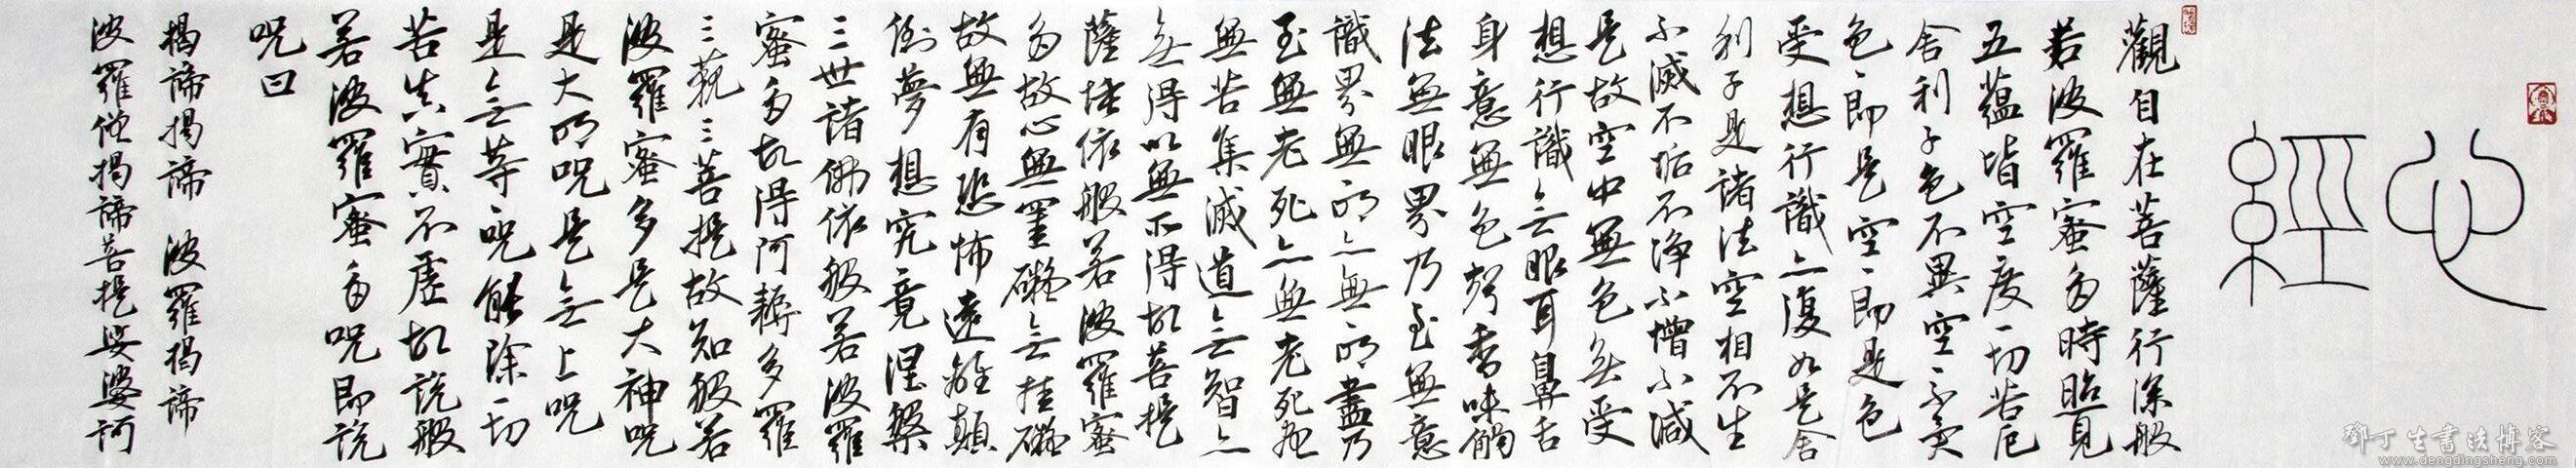 心經
觀自在菩薩行深般
若波羅蜜多時照見
五蘊皆空度一切苦厄
舍利子色不異空、不異
色、即是空、即是色
受想行識亦復如是舍
利子是諸法空相不生
不滅不垢不淨不增不減
是故空中無色無受
想行識無眼耳鼻舌
身意無色聲香味觸
法無眼界乃至無意
識界無無明亦無明盡乃
至無老死亦無老死盡
無苦集滅道無智亦
無得以無所得故菩提
薩埵依般若波羅蜜
多故心無罣礙無挂礙
故無有恐怖遠離顛
倒夢想究竟涅槃
三世諸佛依般若波羅
蜜多故得阿耨多羅
三藐三菩提故知般若
波羅蜜多是大神咒
是大明咒是無上咒
是無等咒能除一切
苦真實不虛故說般
若波羅蜜多咒即說
咒曰
揭諦揭諦 波羅揭諦
波羅僧揭諦菩提娑婆訶
鄧丁生書法博客
www.dengdingsheng.com